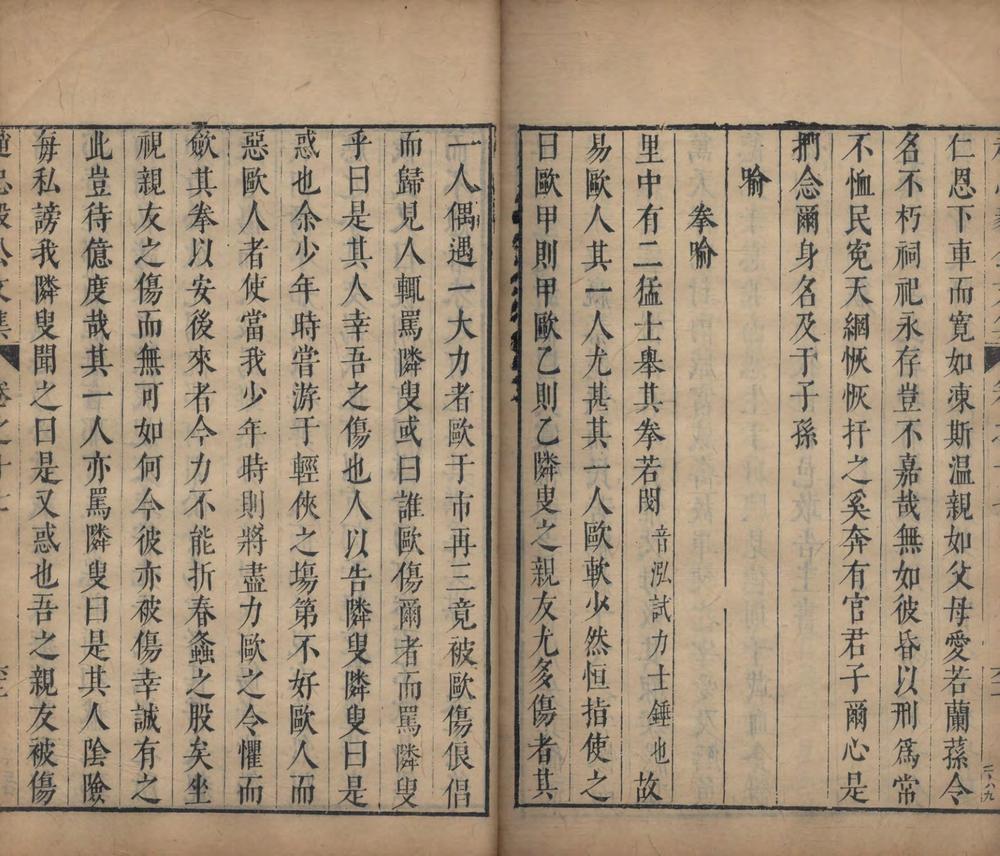 仁恩下車而寛如凍斯温親如父母愛若蘭蓀令
名不朽祠祀永存豈不嘉哉無如彼昏以刑爲常
不恤民寃天網恢恢扞之奚奔有官君子爾心是
捫念爾身名及于子孫
喻
拳喻
里中有二猛士舉其拳若閔音泓試力士錘也故
易歐人其一人尤甚其一人歐軟少然恒指使之
曰歐甲則甲歐乙則乙隣叟之親友尤多傷者其
一人偶遇一大力者歐于市再三竟被歐傷俍倡
而歸見人輒罵隣叟或曰誰歐傷爾者而罵隣叟
乎曰是其人幸吾之傷也人以告隣叟隣叟曰是
惑也余少年時嘗游于輕俠之塲第不好歐人而
惡歐人者使當我少年時則將盡力歐之今懼而
歛其拳以安後來者今力不能折春螽之股矣坐
視親友之傷而無可如何今彼亦被傷幸誠有之
此豈待億度哉其一人亦罵隣叟曰是其人陰險
每私謗我隣叟聞之曰是又惑也吾之親友被傷